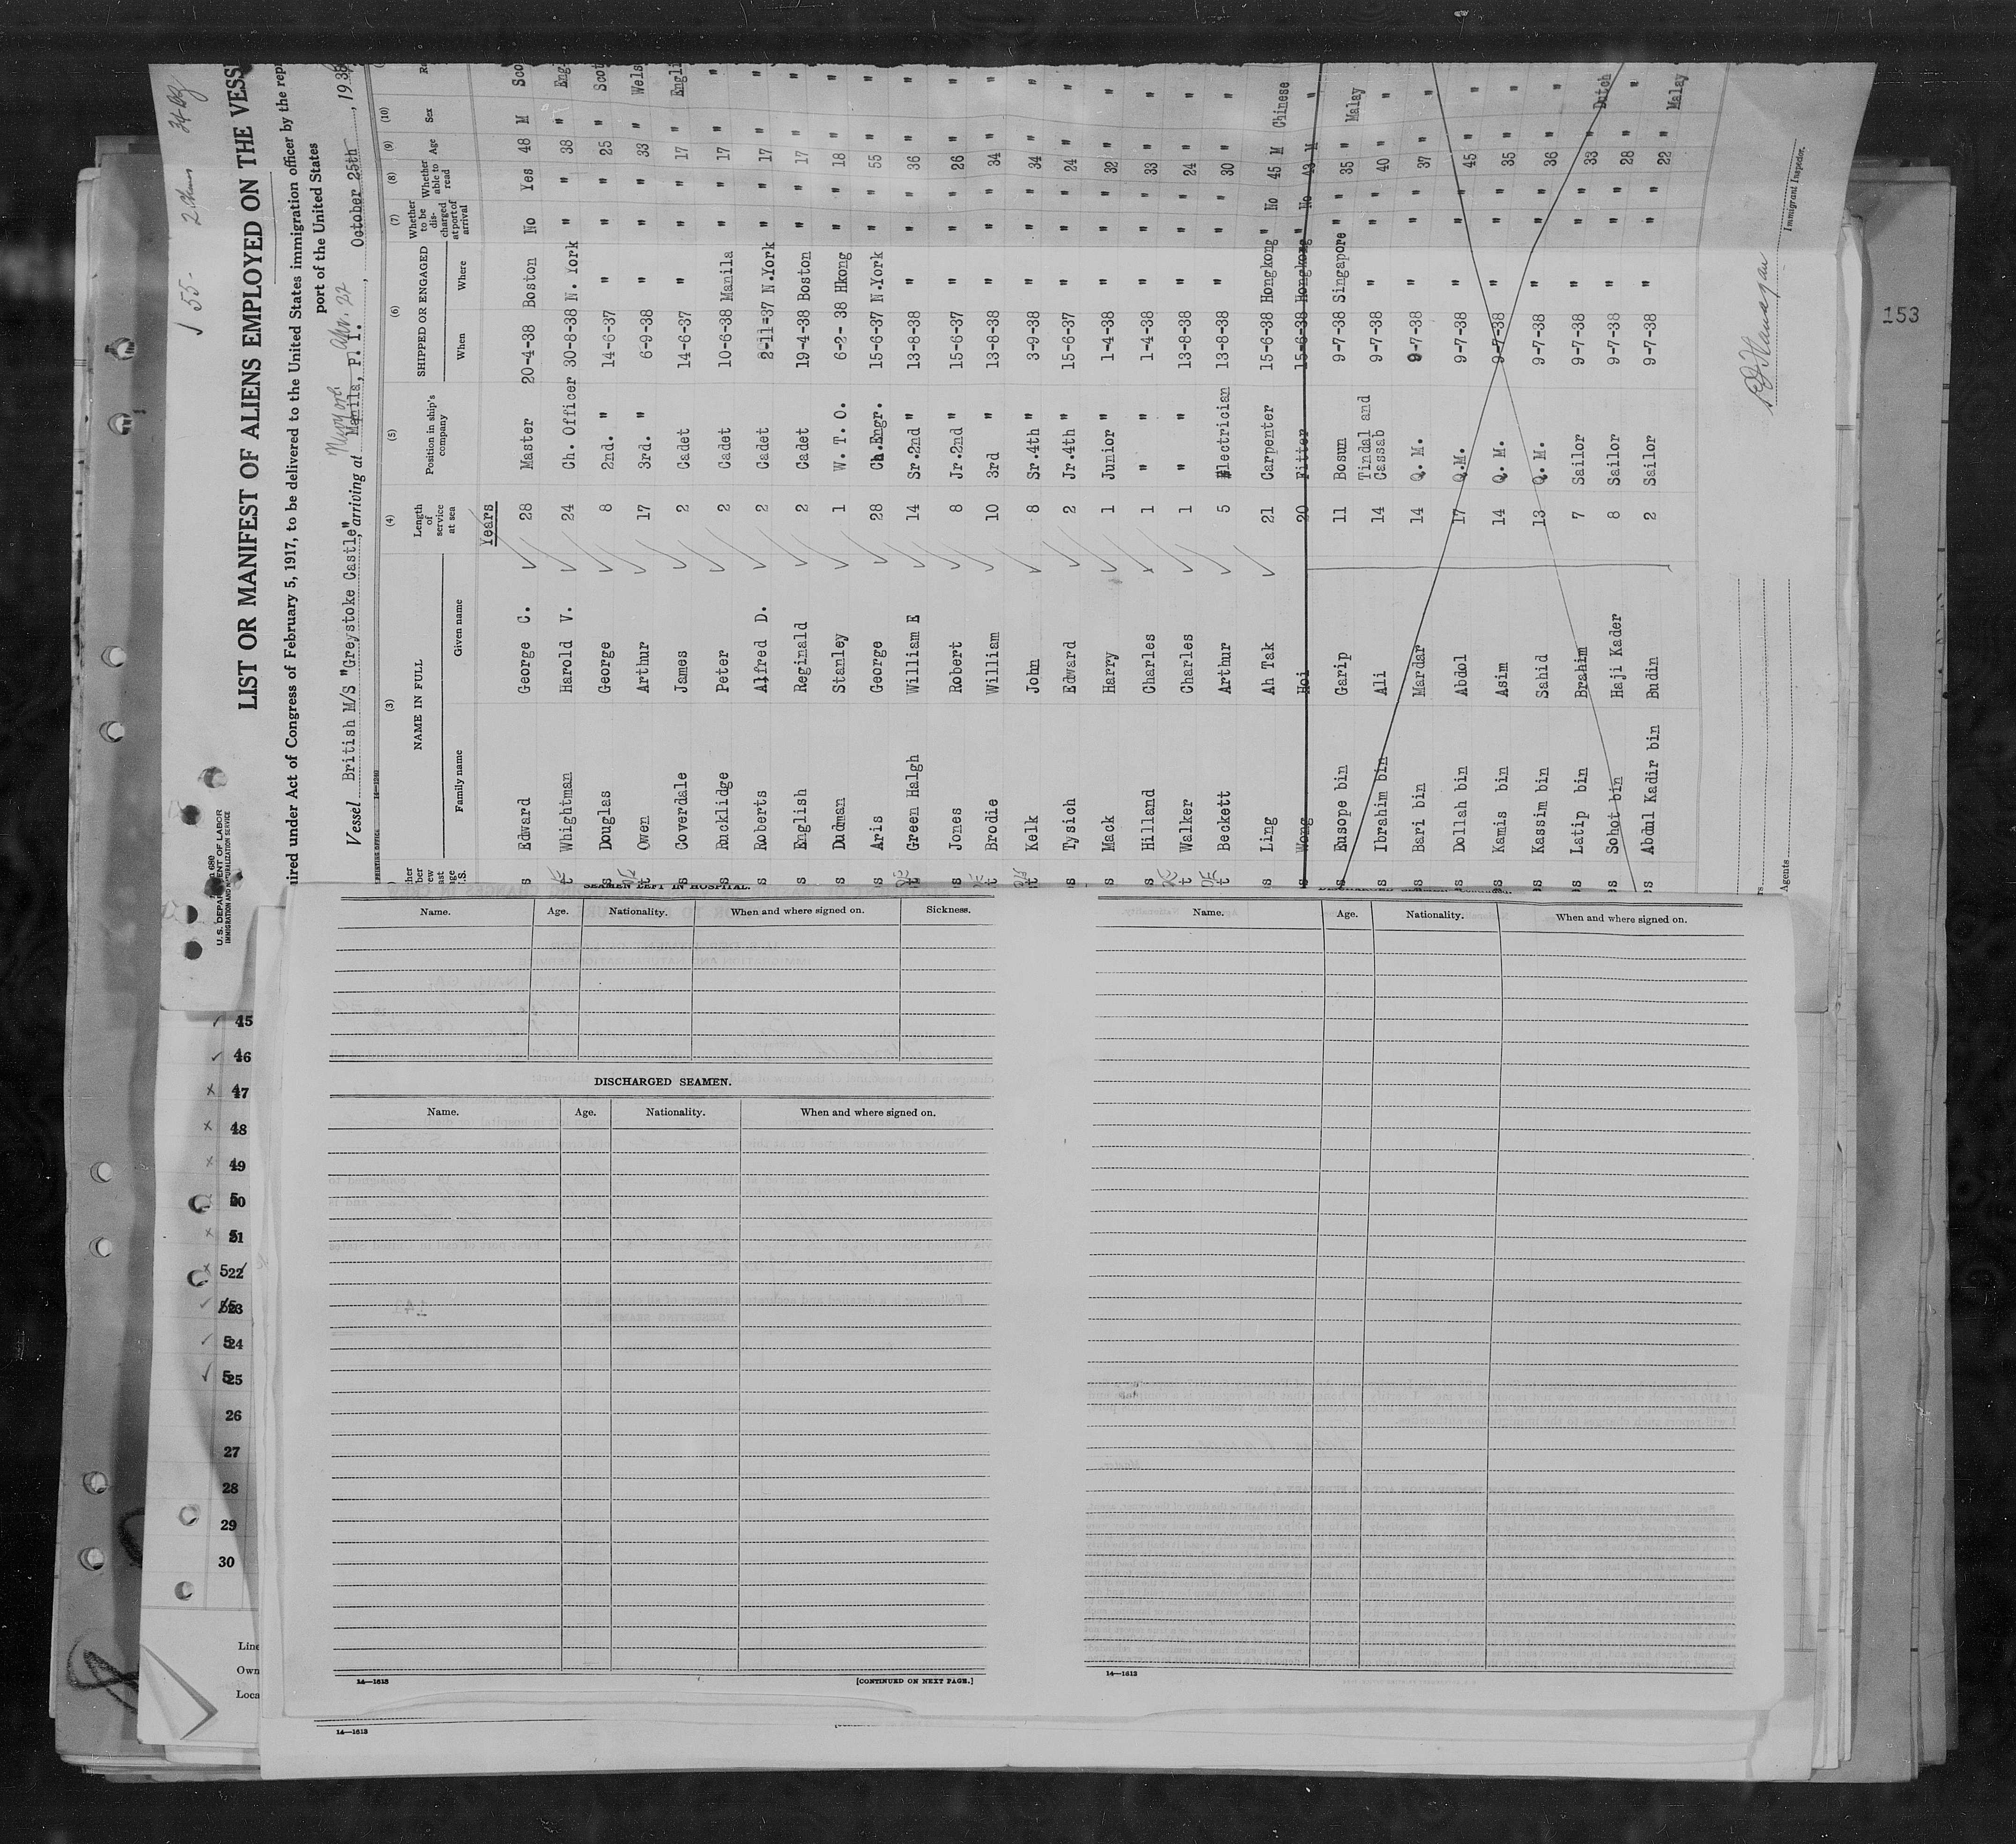 153
LIST OR MANIFEST OF ALIENS EMPLOYED ON THE VESS
uired under Act of Congress of February 5, 1917, to be delivered to the United States immigration officer by the rep
port of the United States
Vessel British M/S "Greystoke Castle", arriving at Manila, P. I. , October 25th , 1938
U.S. DEPARTMENT OF LABOR
IMMIGRATION AND NATURALIZATION SERVICE
(3) (4) (5) (6) (7) (8) (9) (10)
NAME IN FULL
Family name Given name
Length of service at sea
Position in ship's company
SHIPPED OR ENGAGED
When Where
Whether to be discharged at port of arrival
Whether able to read
Age
Sex
Years
Edward George C. 28 Master 20-4-38 Boston No Yes 48 M Sco
Whightman Harold V. 24 Ch. Officer 30-8-38 N. York " " 38 " Eng
Douglas George 8 2nd. " 14-6-37 " " " 25 " Scot
Owen Arthur 17 3rd. " 6-9-38 " " " 33 " Wels
Coverdale James 2 Cadet 14-6-37 " " " 17 " Engli
Rucklidge Peter 2 Cadet 10-6-38 Manila " " 17 " "
Roberts Alfred D. 2 Cadet 2-11-37 N.York " " 17 " "
English Reginald 2 Cadet 19-4-38 Boston " " 17 " "
Dudman Stanley 1 W. T. O. 6-2- 38 Hkong " " 18 " "
Aris George 28 Ch.Engr. 15-6-37 N.York " " 55 " "
Green Halgh William E 14 Sr.2nd " 13-8-38 " " " 36 " "
Jones Robert 8 Jr.2nd " 15-6-37 " " " 26 " "
Brodie William 10 3rd " 13-8-38 " " " 34 " "
Kelk John 8 Sr.4th " 3-9-38 " " " 34 " "
Tysich Edward 2 Jr.4th " 15-6-37 " " " 24 " "
Mack Harry 1 Junior " 1-4-38 " " " 32 " "
Hilland Charles 1 " " 1-4-38 " " " 33 " "
Walker Charles 1 " " 13-8-38 " " " 24 " "
Beckett Arthur 5 Electrician 13-8-38 " " " 30 " "
Ling Ah Tak 21 Carpenter 15-6-38 Hongkong " No 45 M Chinese
Wong Hoi 20 Fitter 15-6-38 Hongkong " No 43 M "
Eusope bin Garip 11 Bosun 9-7-38 Singapore " " 35 " Malay
Ibrahim bin Ali 14 Tindal and Cassab 9-7-38 " " " 40 " "
Bari bin Mardar 14 Q. M. 9-7-38 " " " 37 " "
Dollah bin Abdol 17 Q.M. 9-7-38 " " " 45 " "
Kamis bin Asim 14 Q. M. 9-7-38 " " " 35 " "
Kassim bin Sahid 13 Q. M. 9-7-38 " " " 36 " "
Latip bin Brahim 7 Sailor 9-7-38 " " " 33 " Dutch
Sohot bin Haji Kader 8 Sailor 9-7-38 " " " 28 " "
Abdul Kadir bin Budin 2 Sailor 9-7-38 " " " 22 " Malay
Immigrant Inspector.
Agents
SEAMEN LEFT IN HOSPITAL.
Name. Age. Nationality. When and where signed on. Sickness.
DISCHARGED SEAMEN.
Name. Age. Nationality. When and where signed on.
14—1613
[CONTINUED ON NEXT PAGE.]
Name. Age. Nationality. When and where signed on.
14—1613
14—1613
45
46
47
48
49
50
51
52
53
54
55
26
27
28
29
30
Line
Own
Loca